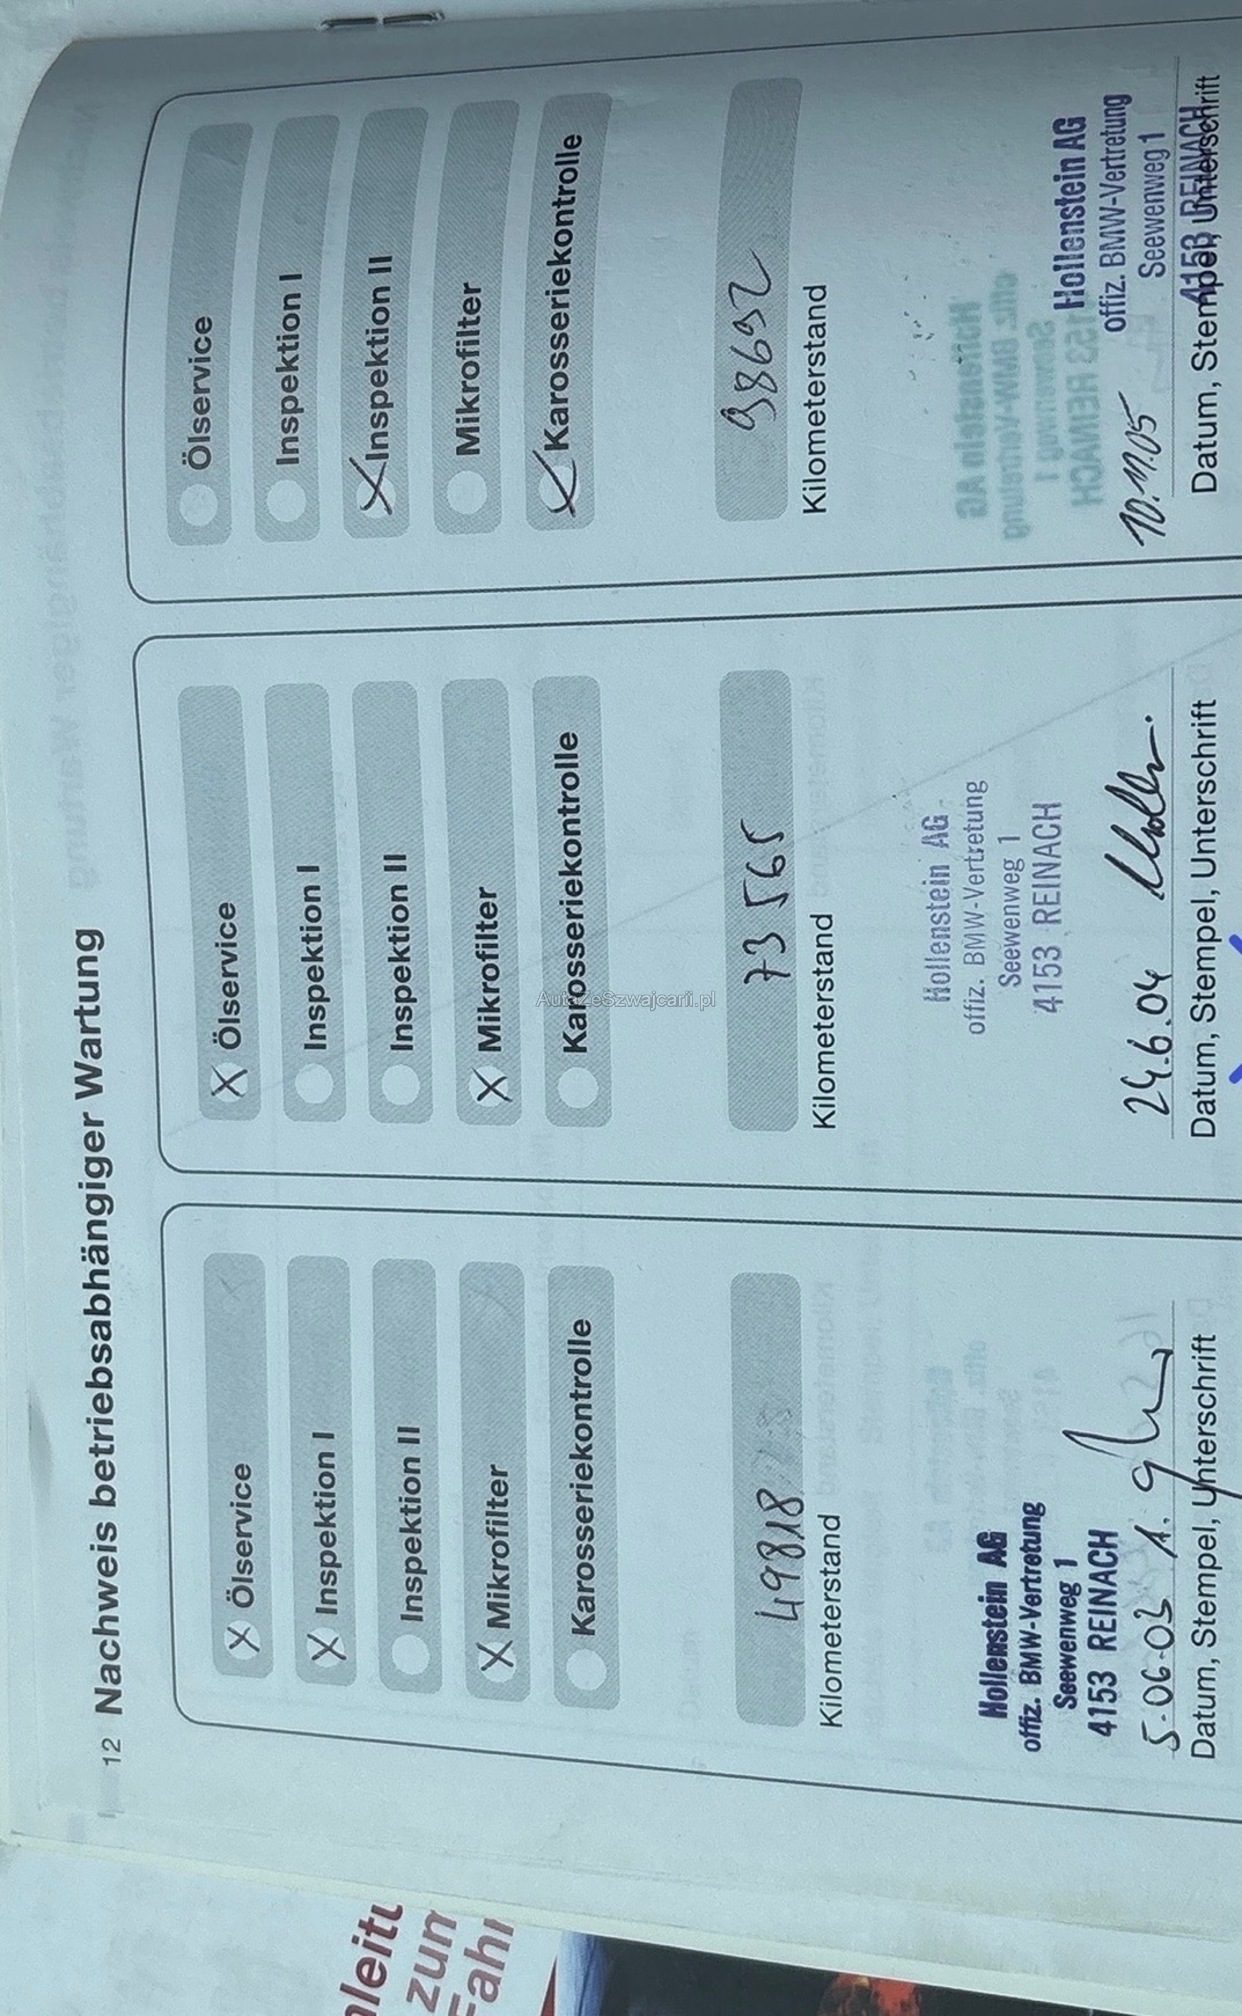 12 Nachweis betriebsabhängiger Wartung
X Ölservice
X Inspektion I
Inspektion II
X Mikrofilter
Karosseriekontrolle
49818
Kilometerstand
Hollenstein AG
offiz. BMW-Vertretung
Seewenweg 1
4153 REINACH
5.06.03
Datum, Stempel, Unterschrift
X Ölservice
Inspektion I
Inspektion II
X Mikrofilter
Karosseriekontrolle
73565
Kilometerstand
Hollenstein AG
offiz. BMW-Vertretung
Seewenweg 1
4153 REINACH
24.6.04
Datum, Stempel, Unterschrift
Ölservice
Inspektion I
X Inspektion II
Mikrofilter
X Karosseriekontrolle
98692
Kilometerstand
Hollenstein AG
offiz. BMW-Vertretung
Seewenweg 1
4153 REINACH
10.11.05
Datum, Stempel, Unterschrift
AutaZeSzwajcarii.pl
zum